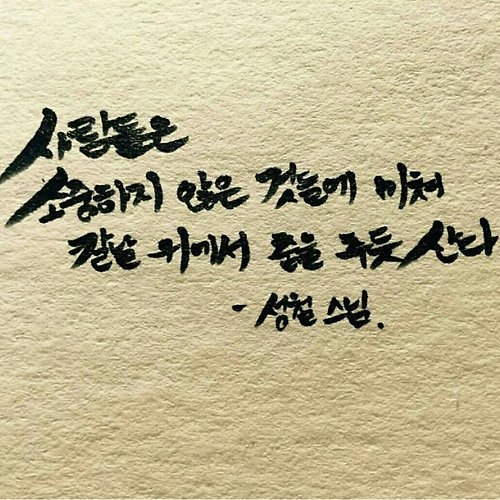 사람들은
소중하지 않은 것들에 미쳐
칼날 위에서 춤을 추듯 산다
- 성철 스님.